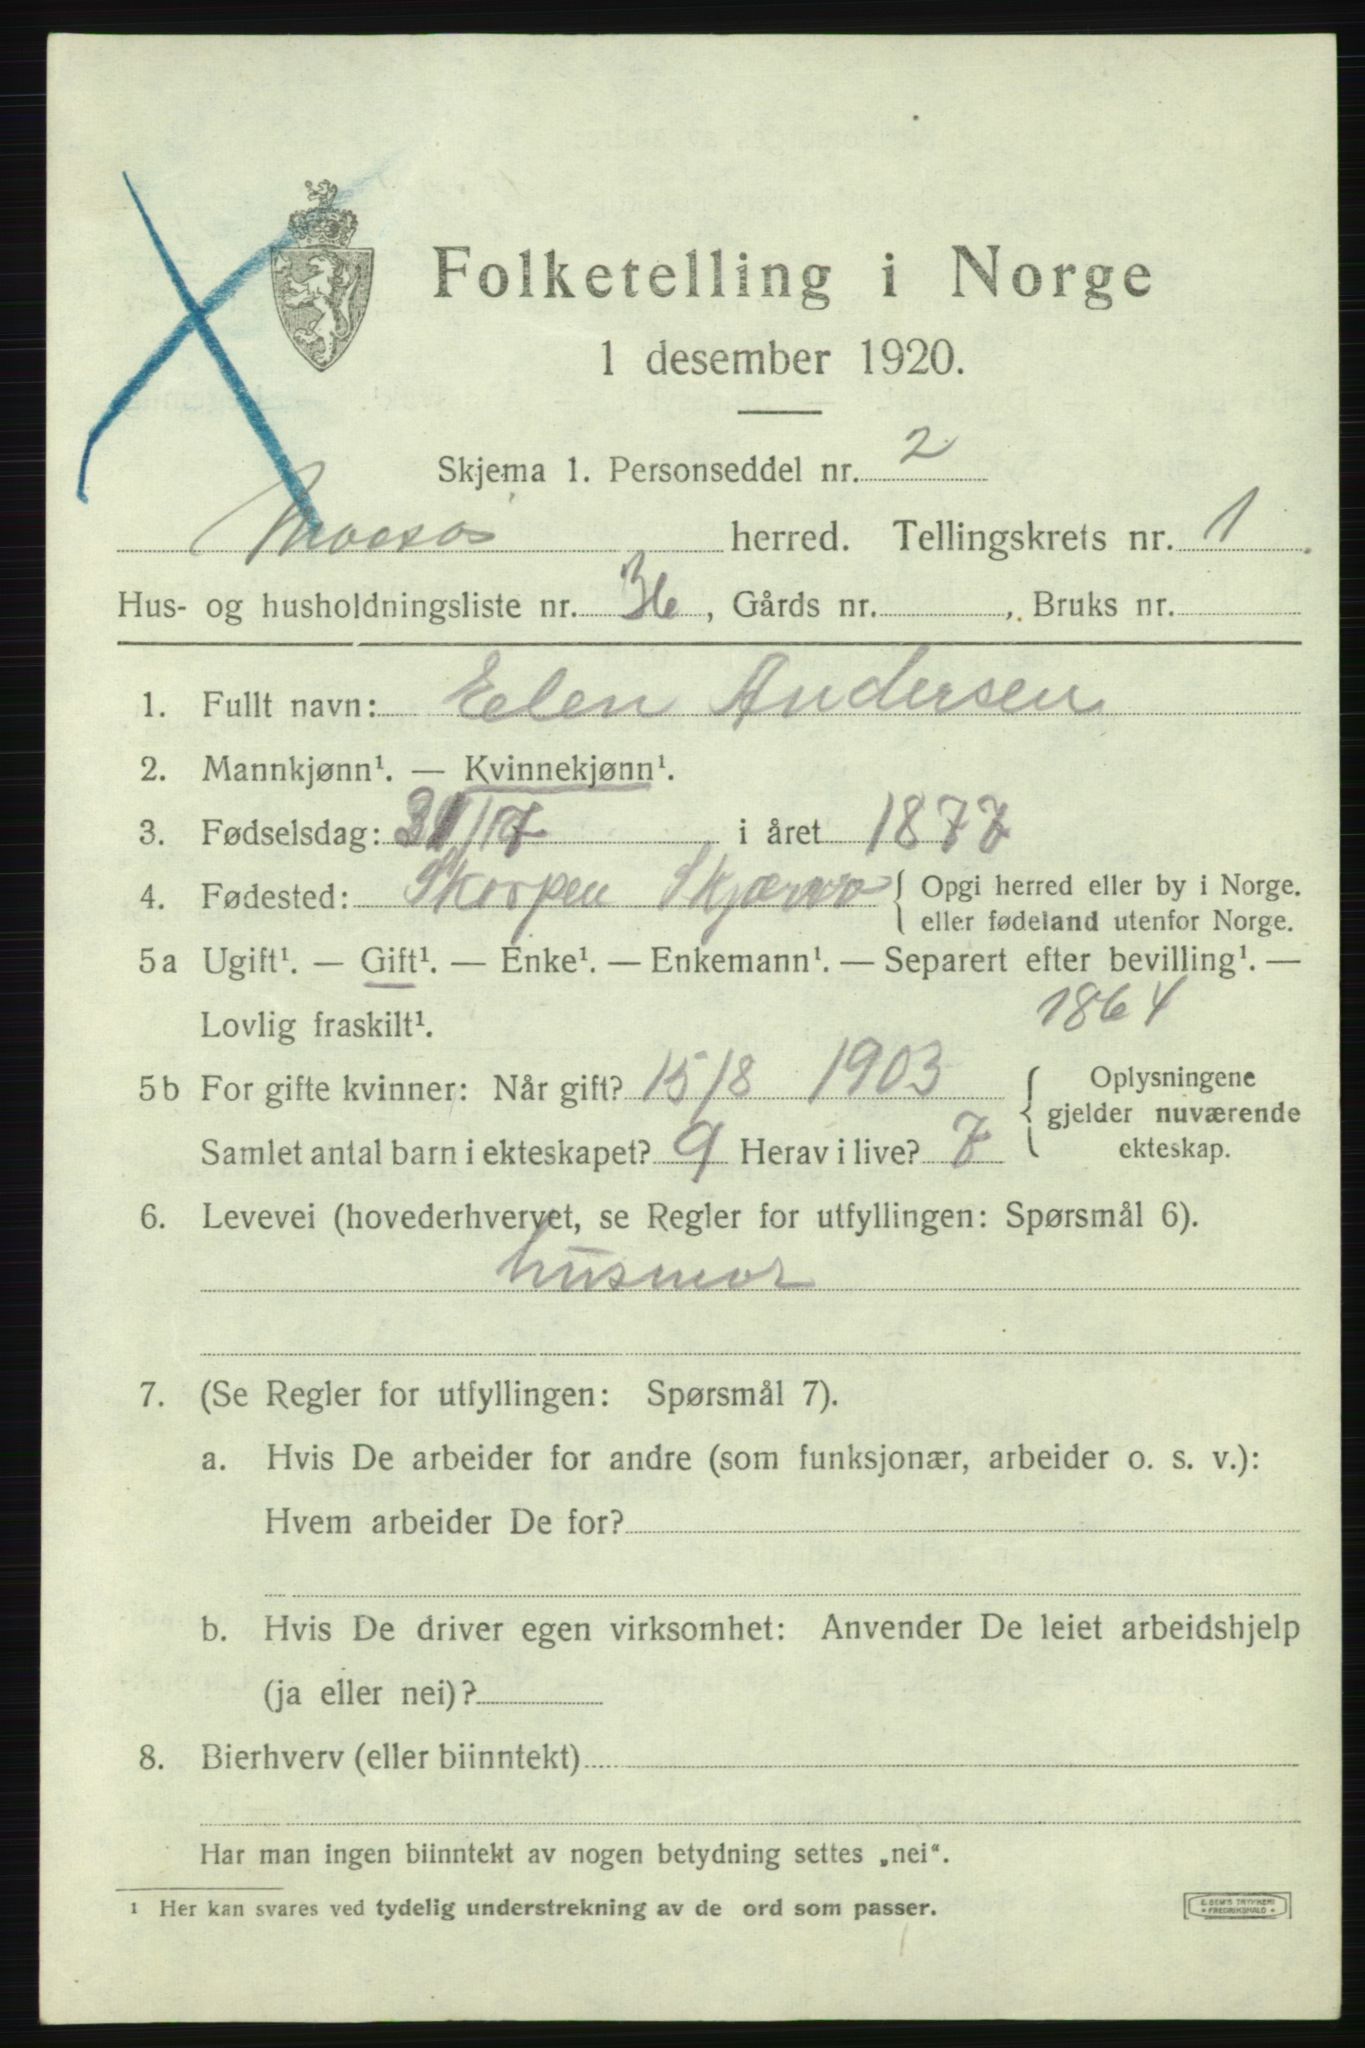 Folketelling i Norge
1 desember 1920.
Skjema 1. Personseddel nr. 2
herred. Tellingskrets nr. 1
Hus- og husholdningsliste nr. 36, Gårds nr. , Bruks nr.
1. Fullt navn: Elen Andersen
2. Mannkjønn¹. — Kvinnekjønn¹.
3. Fødselsdag: i året 1877
4. Fødested: Skorpen Skjærvø { Opgi herred eller by i Norge.
eller fødeland utenfor Norge.
5a Ugift¹. — Gift¹. — Enke¹. — Enkemann¹. — Separert efter bevilling¹. —
Lovlig fraskilt¹. 1864
5b For gifte kvinner: Når gift? 15/8 1903
Samlet antal barn i ekteskapet? 9 Herav i live? 7
Oplysningene
gjelder nuværende
ekteskap.
6. Levevei (hovederhvervet, se Regler for utfyllingen: Spørsmål 6).
husmor
7. (Se Regler for utfyllingen: Spørsmål 7).
a. Hvis De arbeider for andre (som funksjonær, arbeider o. s. v.):
Hvem arbeider De for?
b. Hvis De driver egen virksomhet: Anvender De leiet arbeidshjelp
(ja eller nei)?
8. Bierhverv (eller biinntekt)
Har man ingen biinntekt av nogen betydning settes „nei“.
¹ Her kan svares ved tydelig understrekning av de ord som passer.
E. SEM'S TRYKKERI
• FREDRIKSHALD •